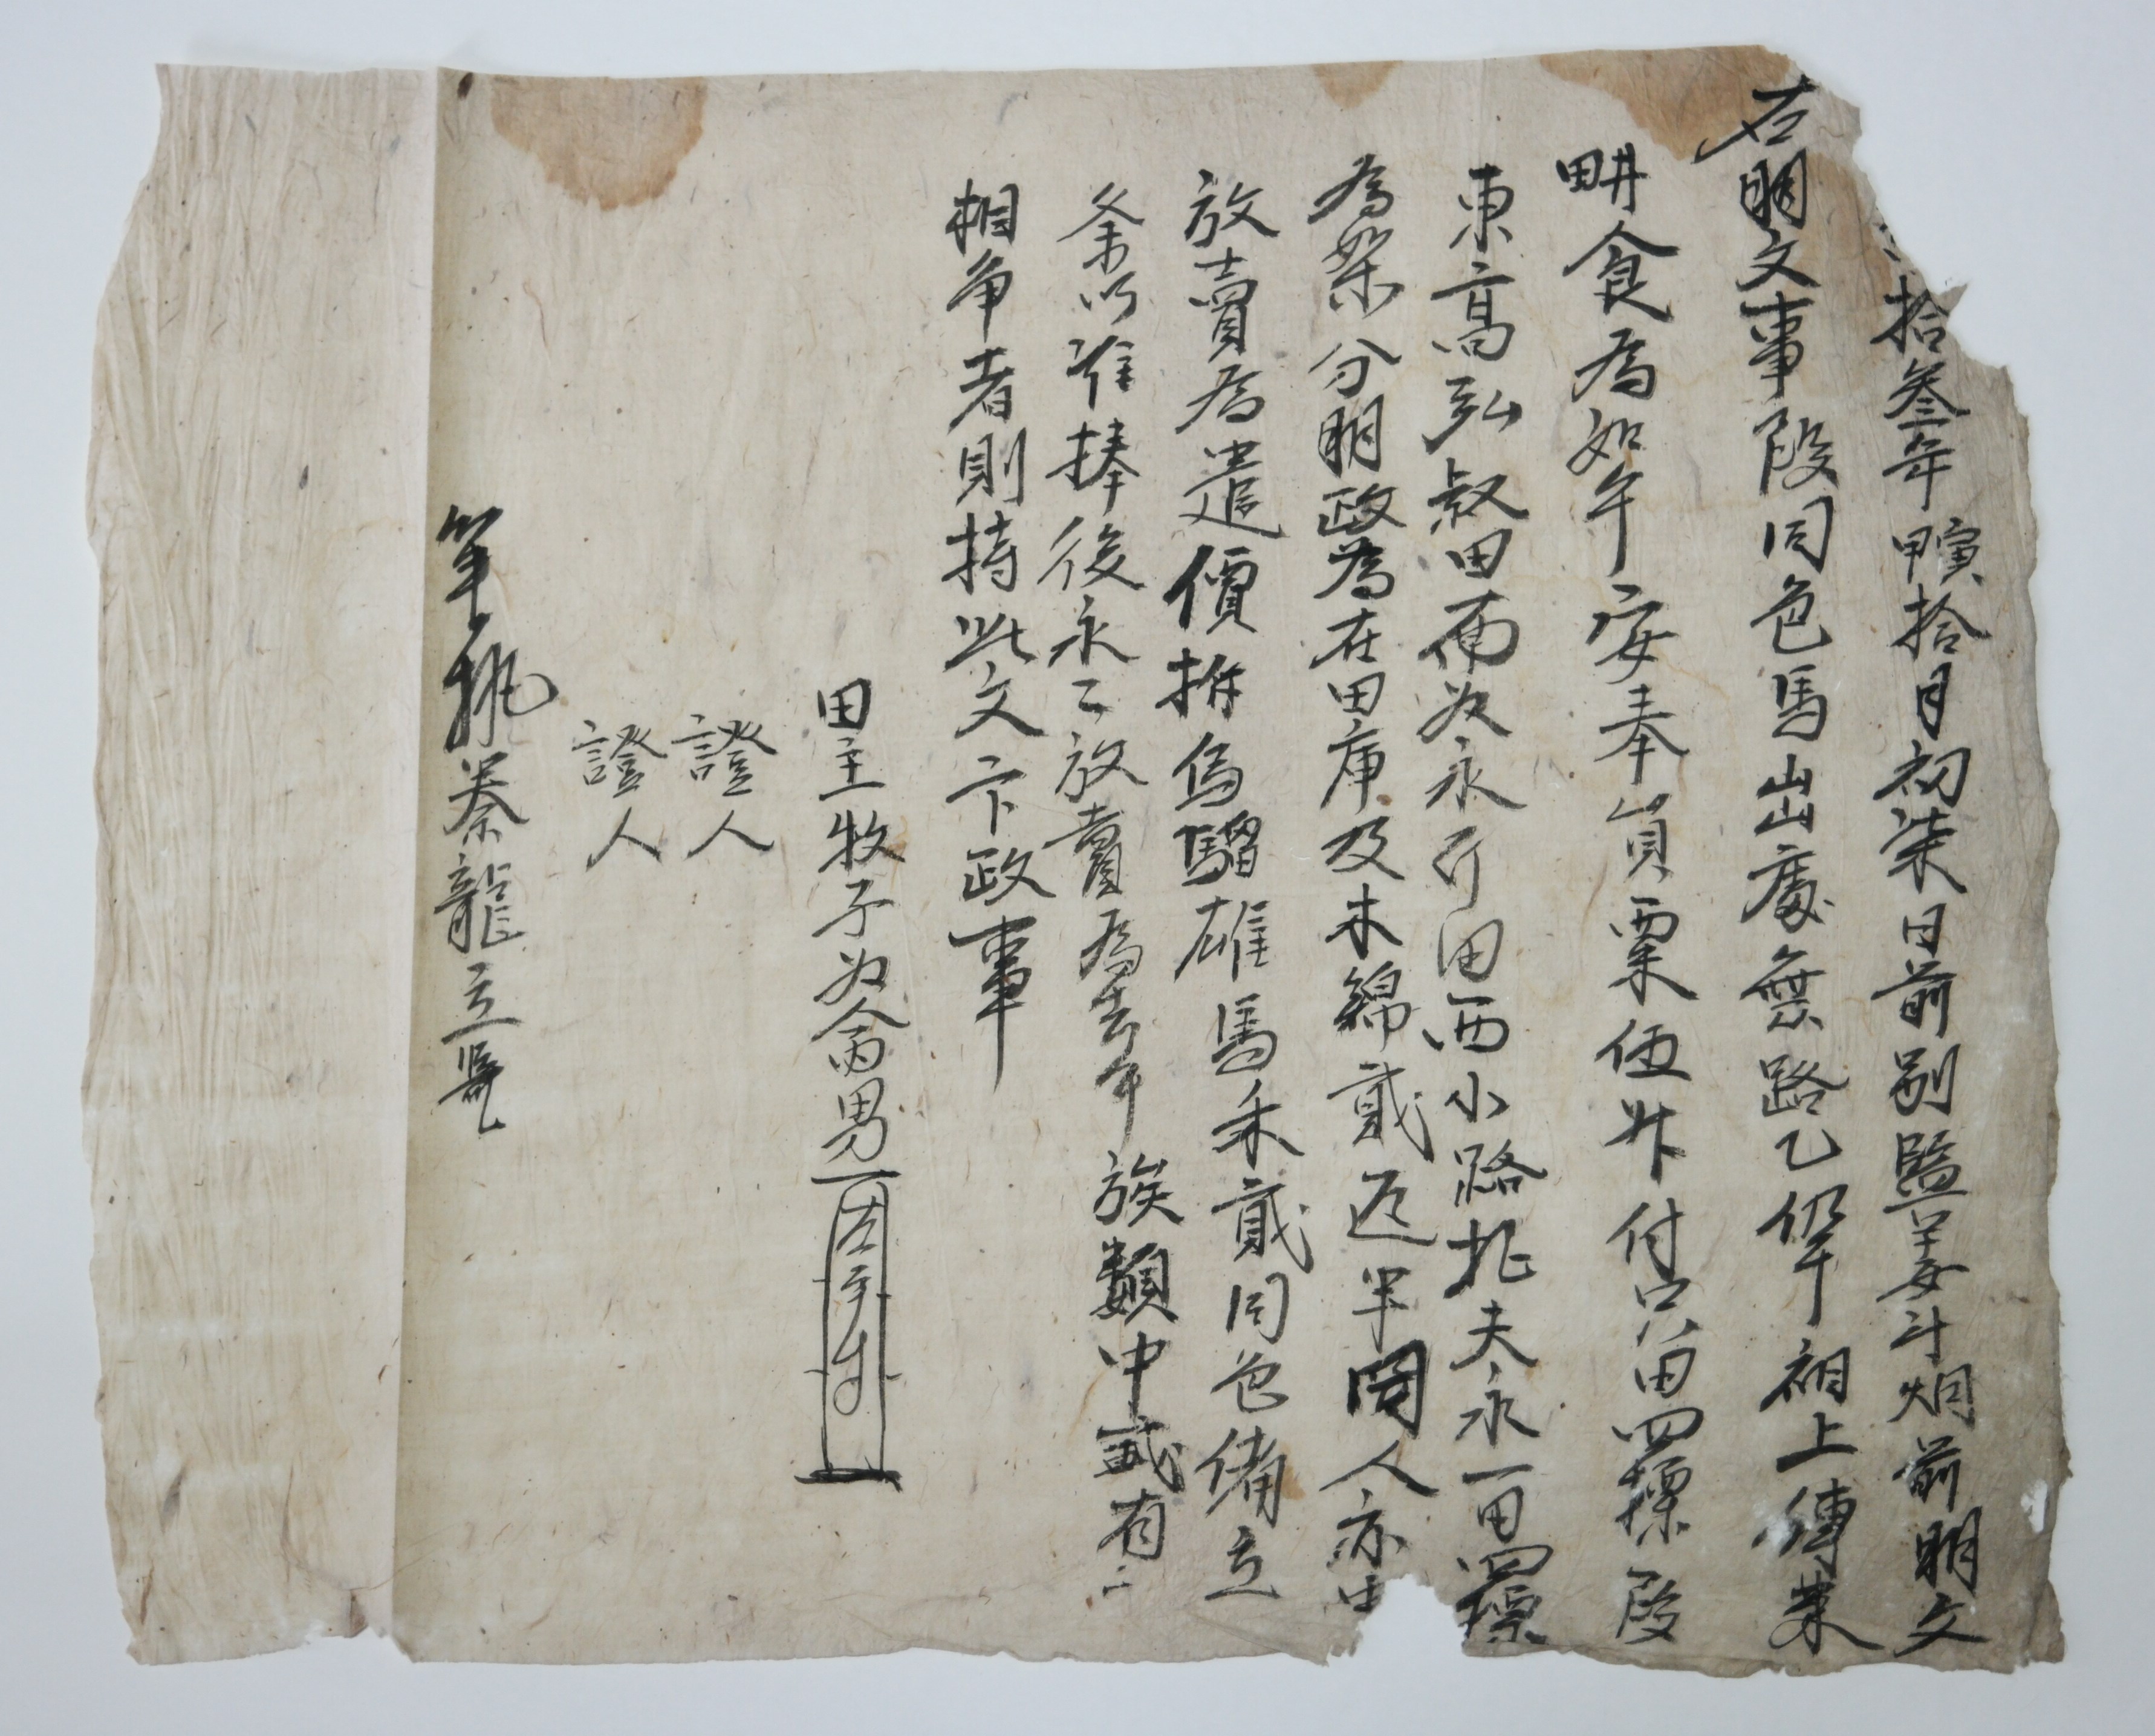 拾叁年甲寅拾月初柒日前別監姜斗烟前明文
右明文事段同色馬出處無路乙仍于祖上傳來
畊食爲如乎安奉員粟伍升付只田四標段
東高弘叔田南次永行田西小路北夫永一田四標
爲等分明政爲在田庫及木錦貳疋半同人亦中
放賣爲遣價折烏騮雄馬禾貳同色備立
条以准捧後永永放賣爲去乎族類中或有
相爭者則持此文卞政事
田主牧子次禽男 左手寸
證人
證人
筆執 秦龍立